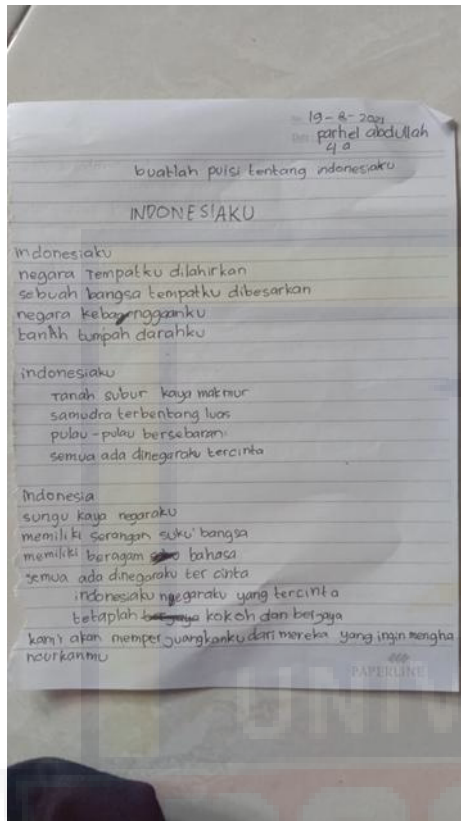 19-8-2021
parhel abdullah
4a
buatlah puisi tentang indonesiaku
INDONESIAKU
indonesiaku
negara Tempatku dilahirkan
sebuah bangsa tempatku dibesarkan
negara
tanah tumpah darahku
indonesiaku
Tanah subur kaya makmur
samudra terbentang luas
pulau-pulau bersebaran
semua ada dinegaraku tercinta
Indonesia
sungu kaya negaraku
memiliki serangan suku bangsa
memiliki beragam bahasa
semua ada dinegaraku ter cinta
indonesiaku negaraku yang tercinta
tetaplah kokoh dan berjaya
kami akan memperjuangkanku dari mereka yang ingin mengha
ncurkanmu
PAPERLINE
UNIV